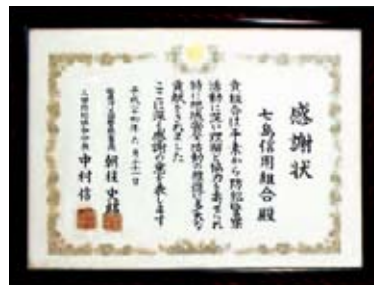 感謝状
七島信用組合殿
貴組合は平素から防犯警察
活動に深い理解と協力を寄せられ
特に地域安全活動の推進に多大な
貢献をされました
ここに深く感謝の意を表します
平成二十四年六月二十一日
中村信